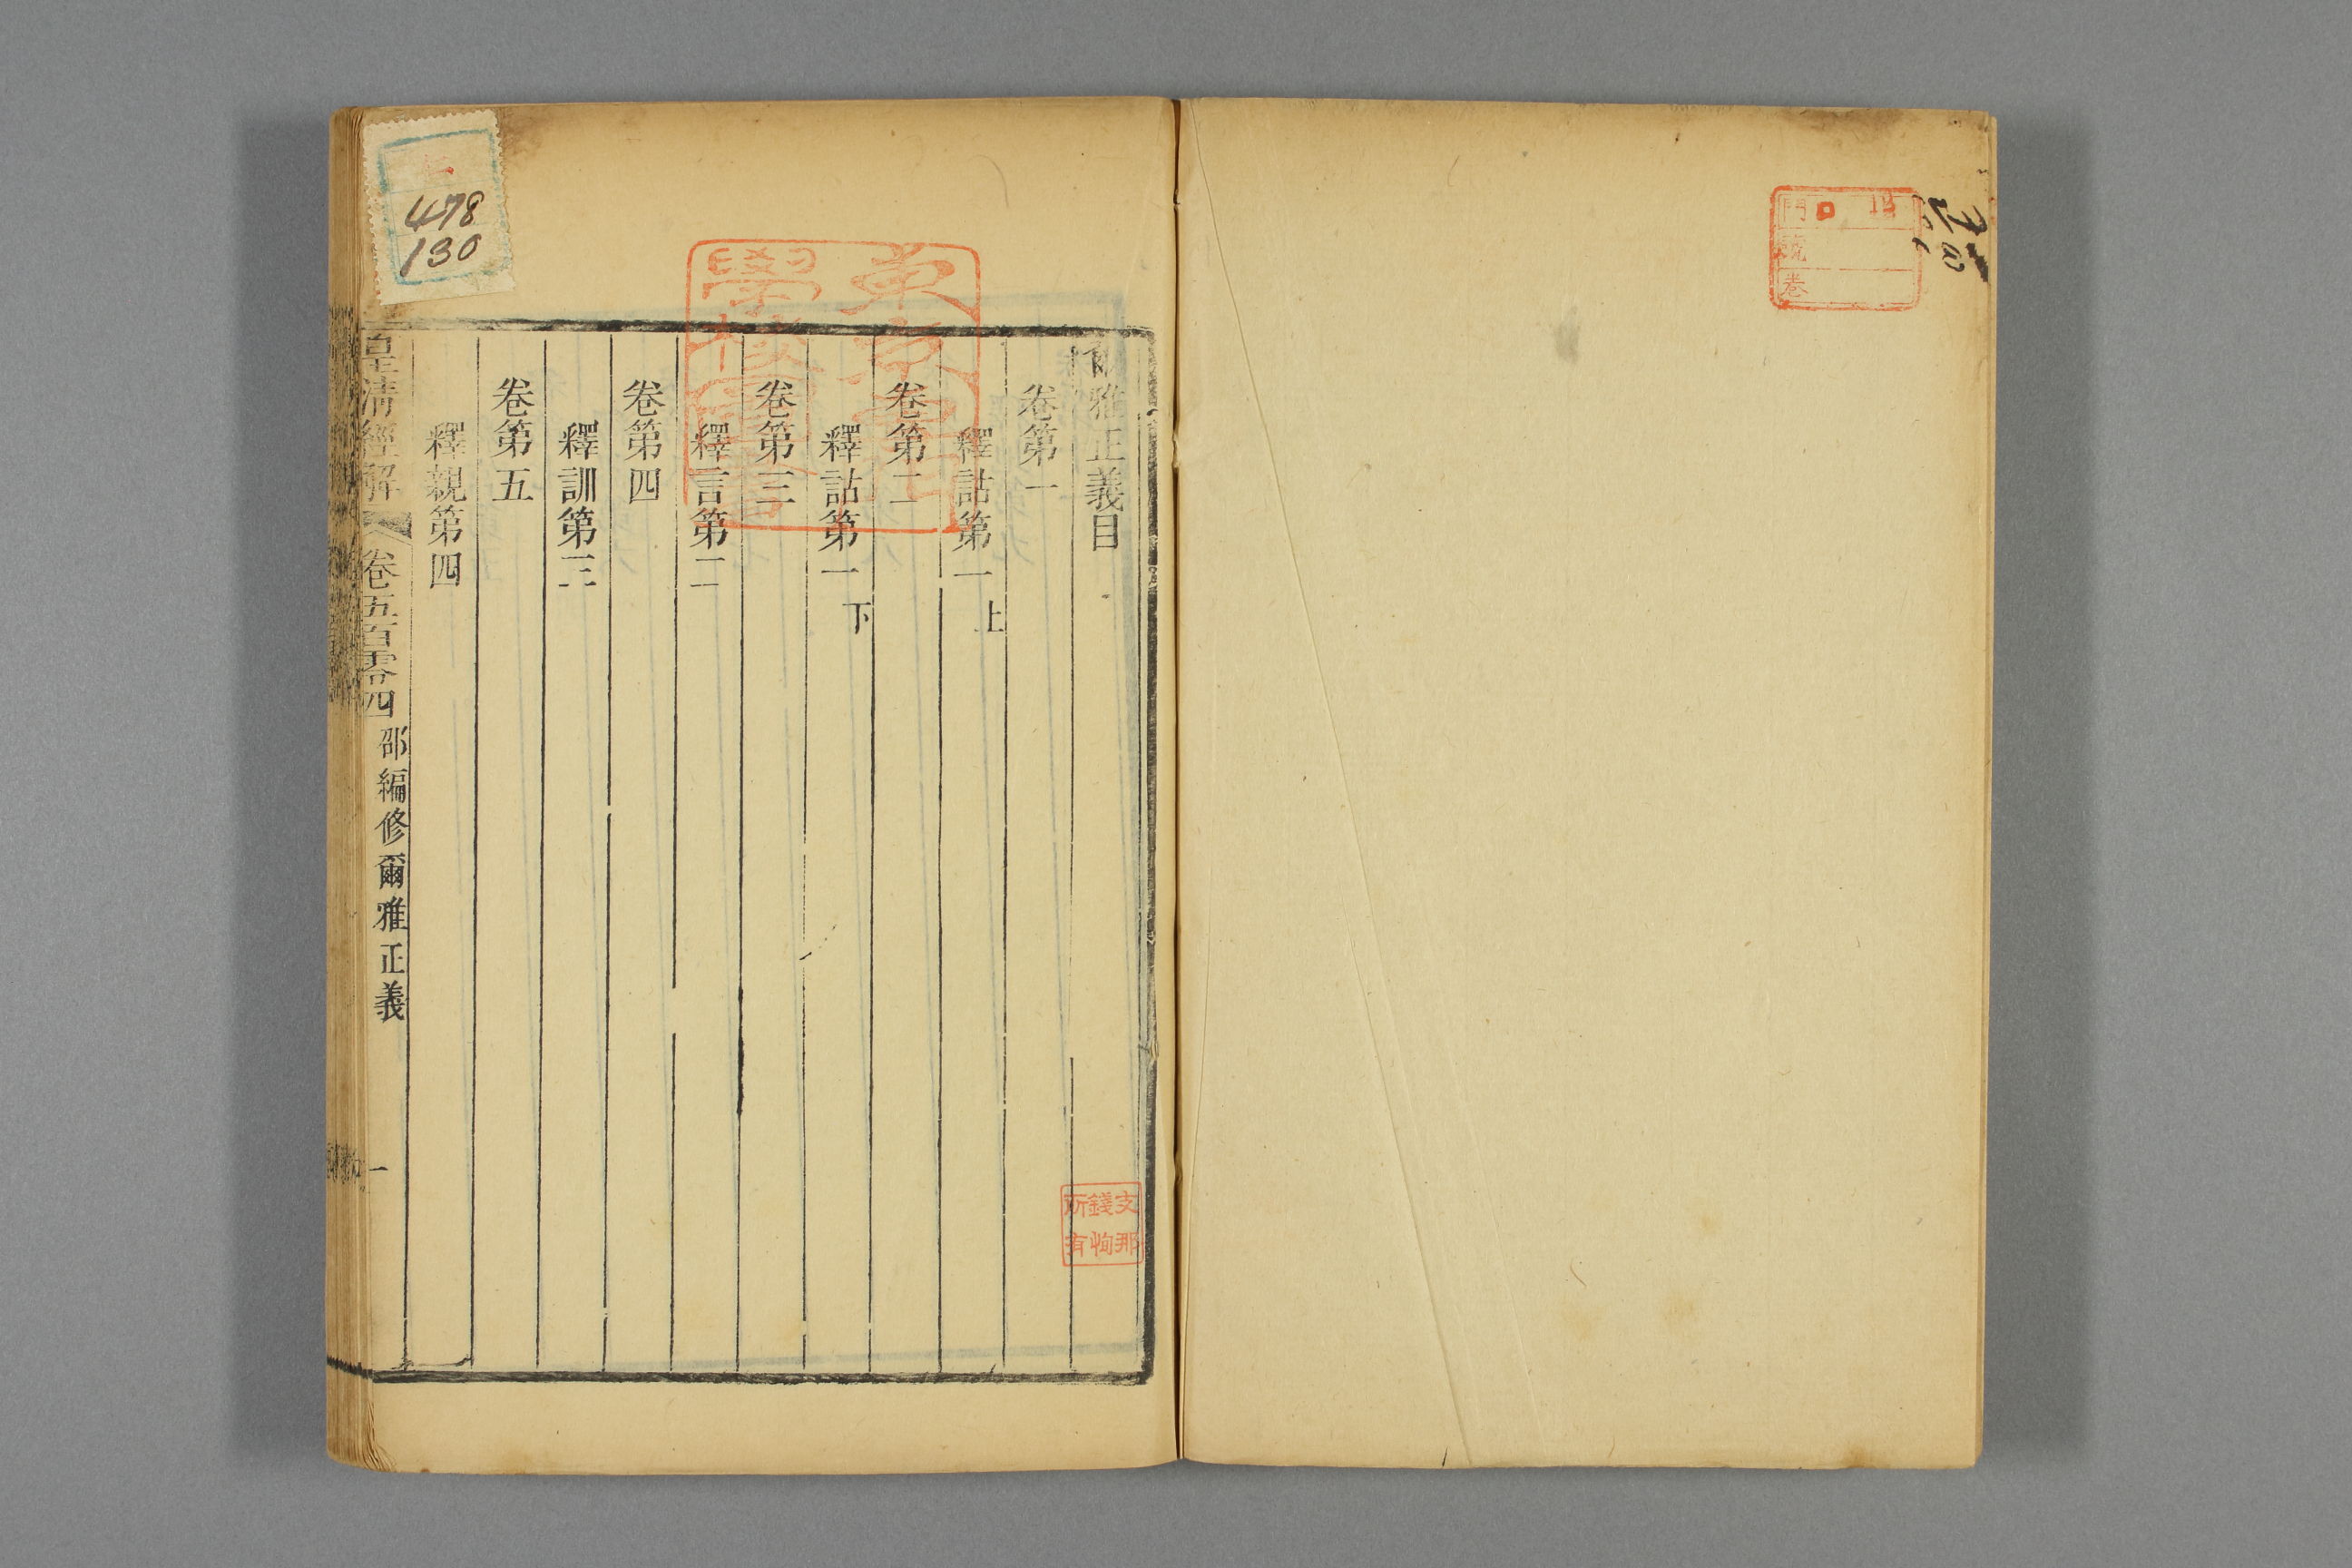 門
號
卷
爾雅正義目
卷第一
釋詁第一 上
卷第二
釋詁第一 下
卷第三
釋言第二
卷第四
釋訓第三
卷第五
釋親第四
皇清經解 卷五百零四 邵編修爾雅正義 一
支那
錢恂
所有
478
130